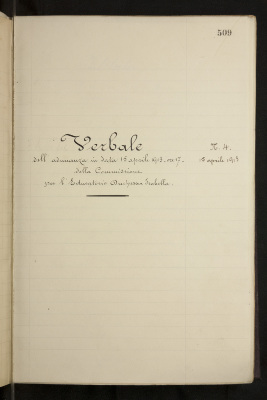 509
Verbale
dell'adunanza in data 18 aprile 1913. ore 9.
della Commissione
per l'Educatorio Duchessa Isabella.
N. 4.
18 aprile 1913